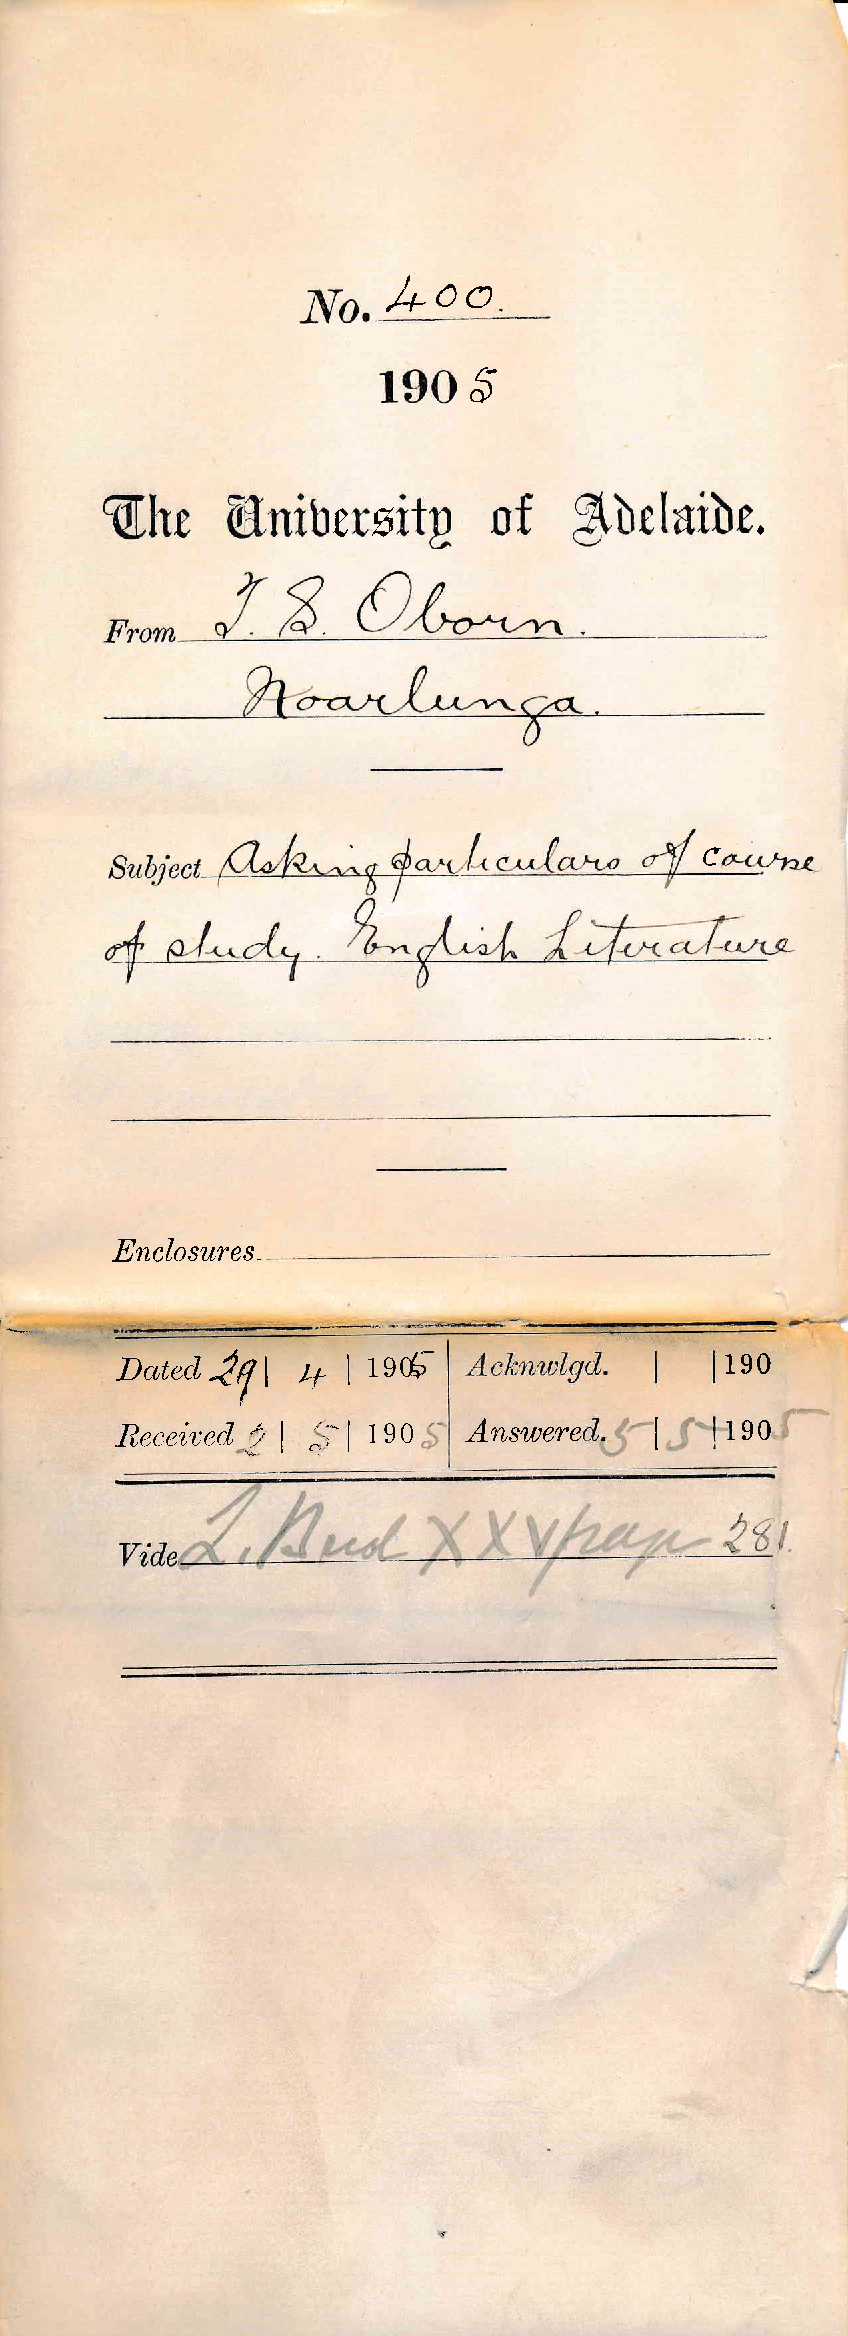 No. 400.
1905
The University of Adelaide.
From T. S. Oborn.
Noarlunga.
Subject Asking particulars of course
of study. English Literature
Enclosures
Dated 29 | 4 | 1905 Acknwlgd. | | 190
Received 2 | 5 | 1905 Answered. 5 | 5 | 1905
Vide L. XXV page 281.